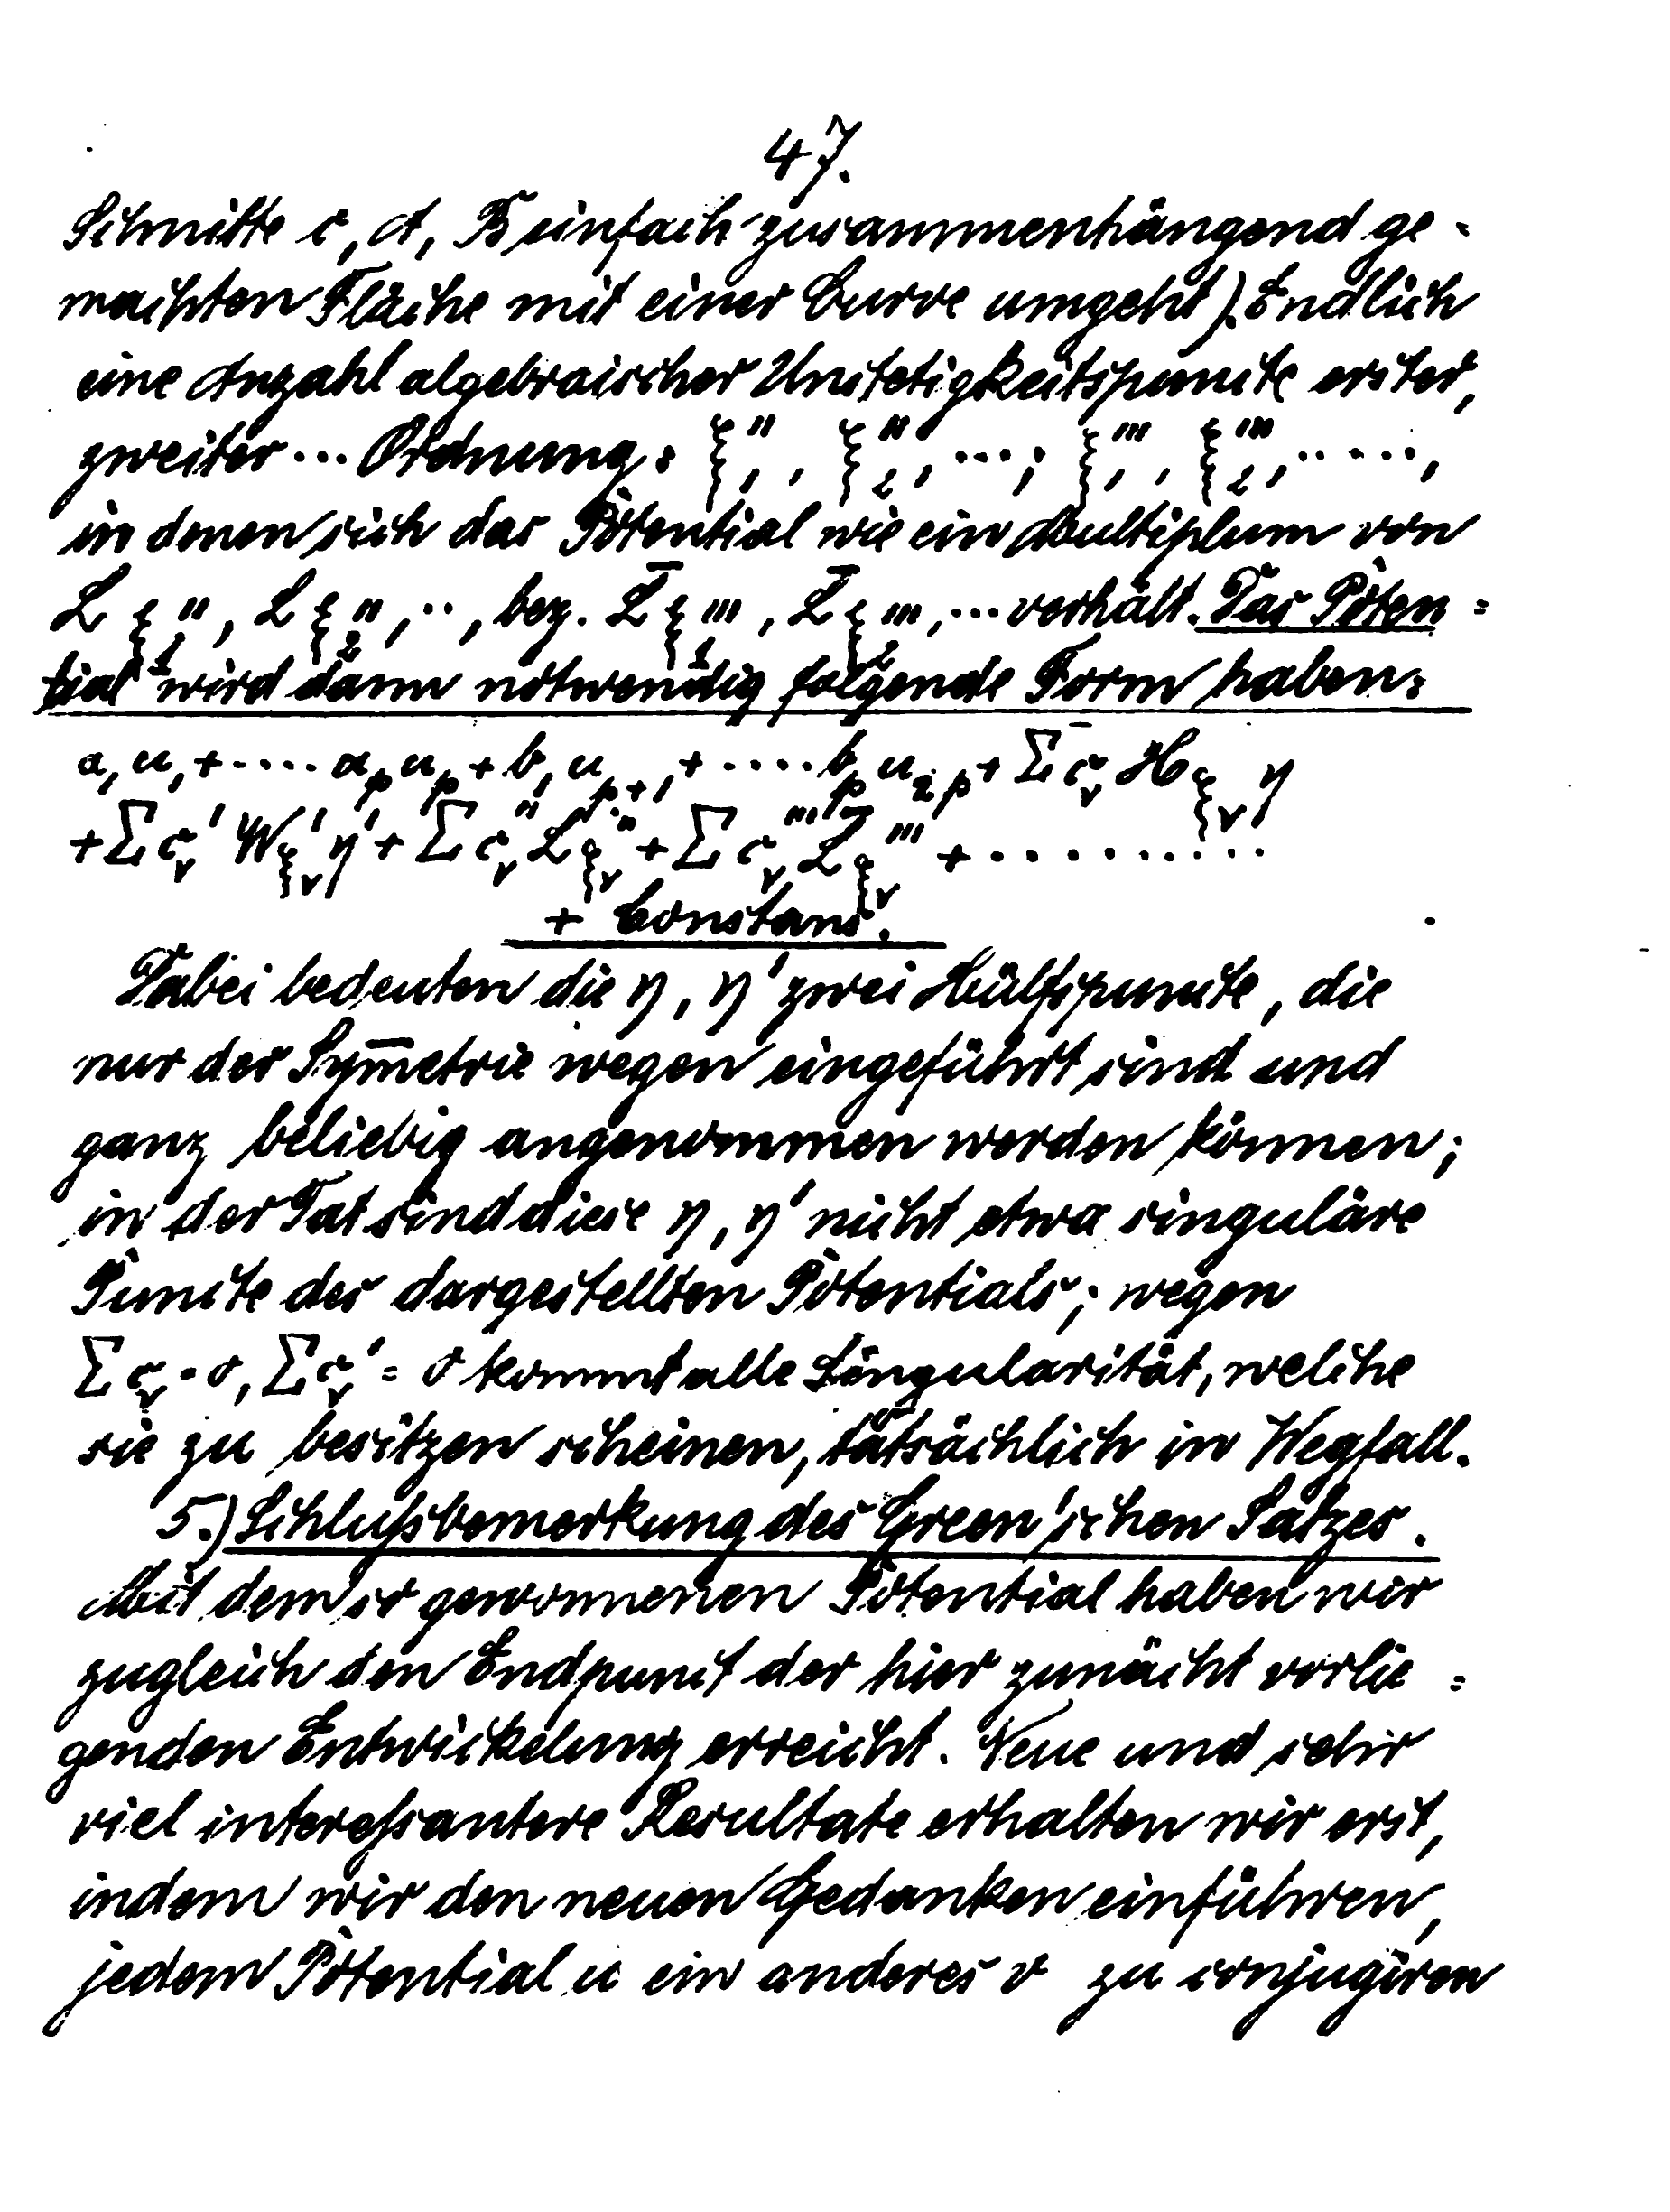 47.
Schnitte c, A, B einfach zusammenhängend ge-
machten Fläche mit einer Curve umgeht). Endlich
eine Anzahl algebraischer Unstetigkeitspuncte erster,
zweiter ... Ordnung: ξ₁'', ξ₂'', ...; ξ₁''', ξ₂''', .....,
in denen sich das Potential wie ein Multiplum von
L ξ₁'', L ξ₂'', .., bez. L̄ ξ₁''', L̄ ξ₂''', ... verhält. Das Poten=
tial wird dann notwendig folgende Form haben:
a₁u₁ + .... aₚuₚ + b₁uₚ₊₁ + .... bₚu₂ₚ + Σ cᵥ H ξᵥ η
+ Σ cᵥ' W ξᵥ' η' + Σ cᵥ'' L ξᵥ'' + Σ cᵥ''' L̄ ξᵥ''' + ..........
+ Constans.
Dabei bedeuten die η, η' zwei Hülfspuncte, die
nur der Sym̅etrie wegen eingeführt sind und
ganz beliebig angenommen werden können;
in der Tat sind diese η, η' nicht etwa singuläre
Puncte des dargestellten Potentials; wegen
Σ cᵥ = 0, Σ cᵥ' = 0 kommt alle Singularität, welche
sie zu besitzen scheinen, tatsächlich in Wegfall.
5.) Schlußbemerkung des Green'schen Satzes.
Mit dem so gewonnenen Potential haben wir
zugleich den Endpunct der hier zunächt vorlie=
genden Entwickelung erreicht. Neue und sehr
viel intereßantere Resultate erhalten wir erst,
indem wir den neuen Gedanken einführen,
jedem Potential u ein anderes v zu conjugiren